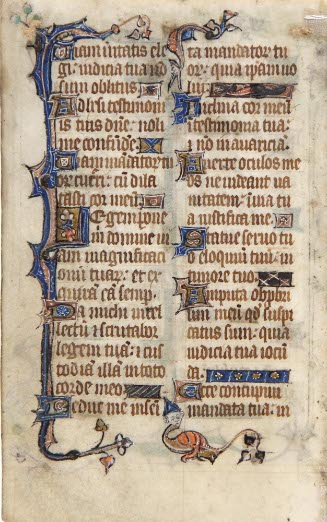 Viam ūitatis ele
gi: iudicia tua nō
sum oblitus.
Adhesi testimoni
is tuis dñe: noli
me confūdē.
Viam mandatorū tu
orꝝ cucurri: cū dila
tasti cor meū.
Legem pone
m̄ domine ui
am iustificati
onū tuarꝝ: et ex
quirā eā semp̄.
Da michi intel
lectū ⁊ scrutabor
legem tuā: ⁊ cus
todiā illā in toto
corde meo.
Deduc me in semi
ta mandatorꝝ tu
orꝝ: quia ip̄am uo
lui.
Inclina cor meū
ī testimonia tua:
⁊ nō in auariciā.
Auerte oculos me
os ne uideant ua
nitatem: ī uia tu
a uiuifica me.
Statue seruo tu
o eloquiū tuū: in
timore tuo.
Amputa obpbri
um meū qđ suspi
catus sum: quia
iudicia tua iocū
da.
Ecce concupiui
mandata tua: in